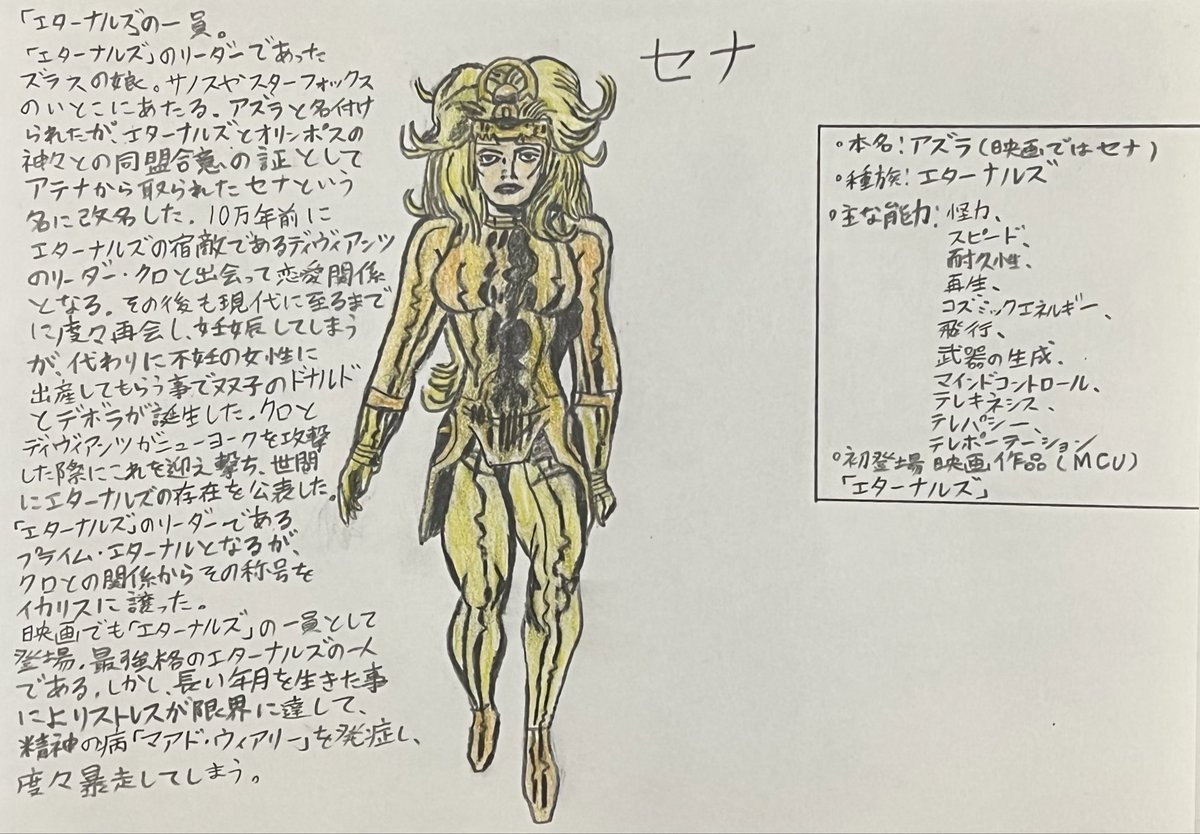 「エターナルズ」の一員。
「エターナルズ」のリーダーであった
ズラスの娘。サノスやスターフォックス
のいとこにあたる。アズラと名付け
られたが、エターナルズとオリンポスの
神々との同盟合意の証として
アテナから取られたセナという
名に改名した。10万年前に
エターナルズの宿敵であるディヴィアンツ
のリーダー・クロと出会って恋愛関係
となる。その後も現代に至るまで
に度々再会し、妊娠してしまう
が、代わりに不妊の女性に
出産してもらう事で双子のドナルド
とデボラが誕生した。クロと
ディヴィアンツがニューヨークを攻撃
した際にこれを迎え撃ち、世間
にエターナルズの存在を公表した。
「エターナルズ」のリーダーである
プライム・エターナルとなるが、
クロとの関係からその称号を
イカリスに譲った。
映画でも「エターナルズ」の一員として
登場。最強格のエターナルズの一人
である。しかし、長い年月を生きた事
によりストレスが限界に達して、
精神の病「マアド・ウィアリー」を発症し、
度々暴走してしまう。
セナ
°本名:アズラ(映画ではセナ)
°種族:エターナルズ
°主な能力:怪力、
スピード、
耐久性、
再生、
コズミックエネルギー、
飛行、
武器の生成、
マインドコントロール、
テレキネシス、
テレパシー、
テレポーテーション
°初登場映画作品(MCU)
「エターナルズ」